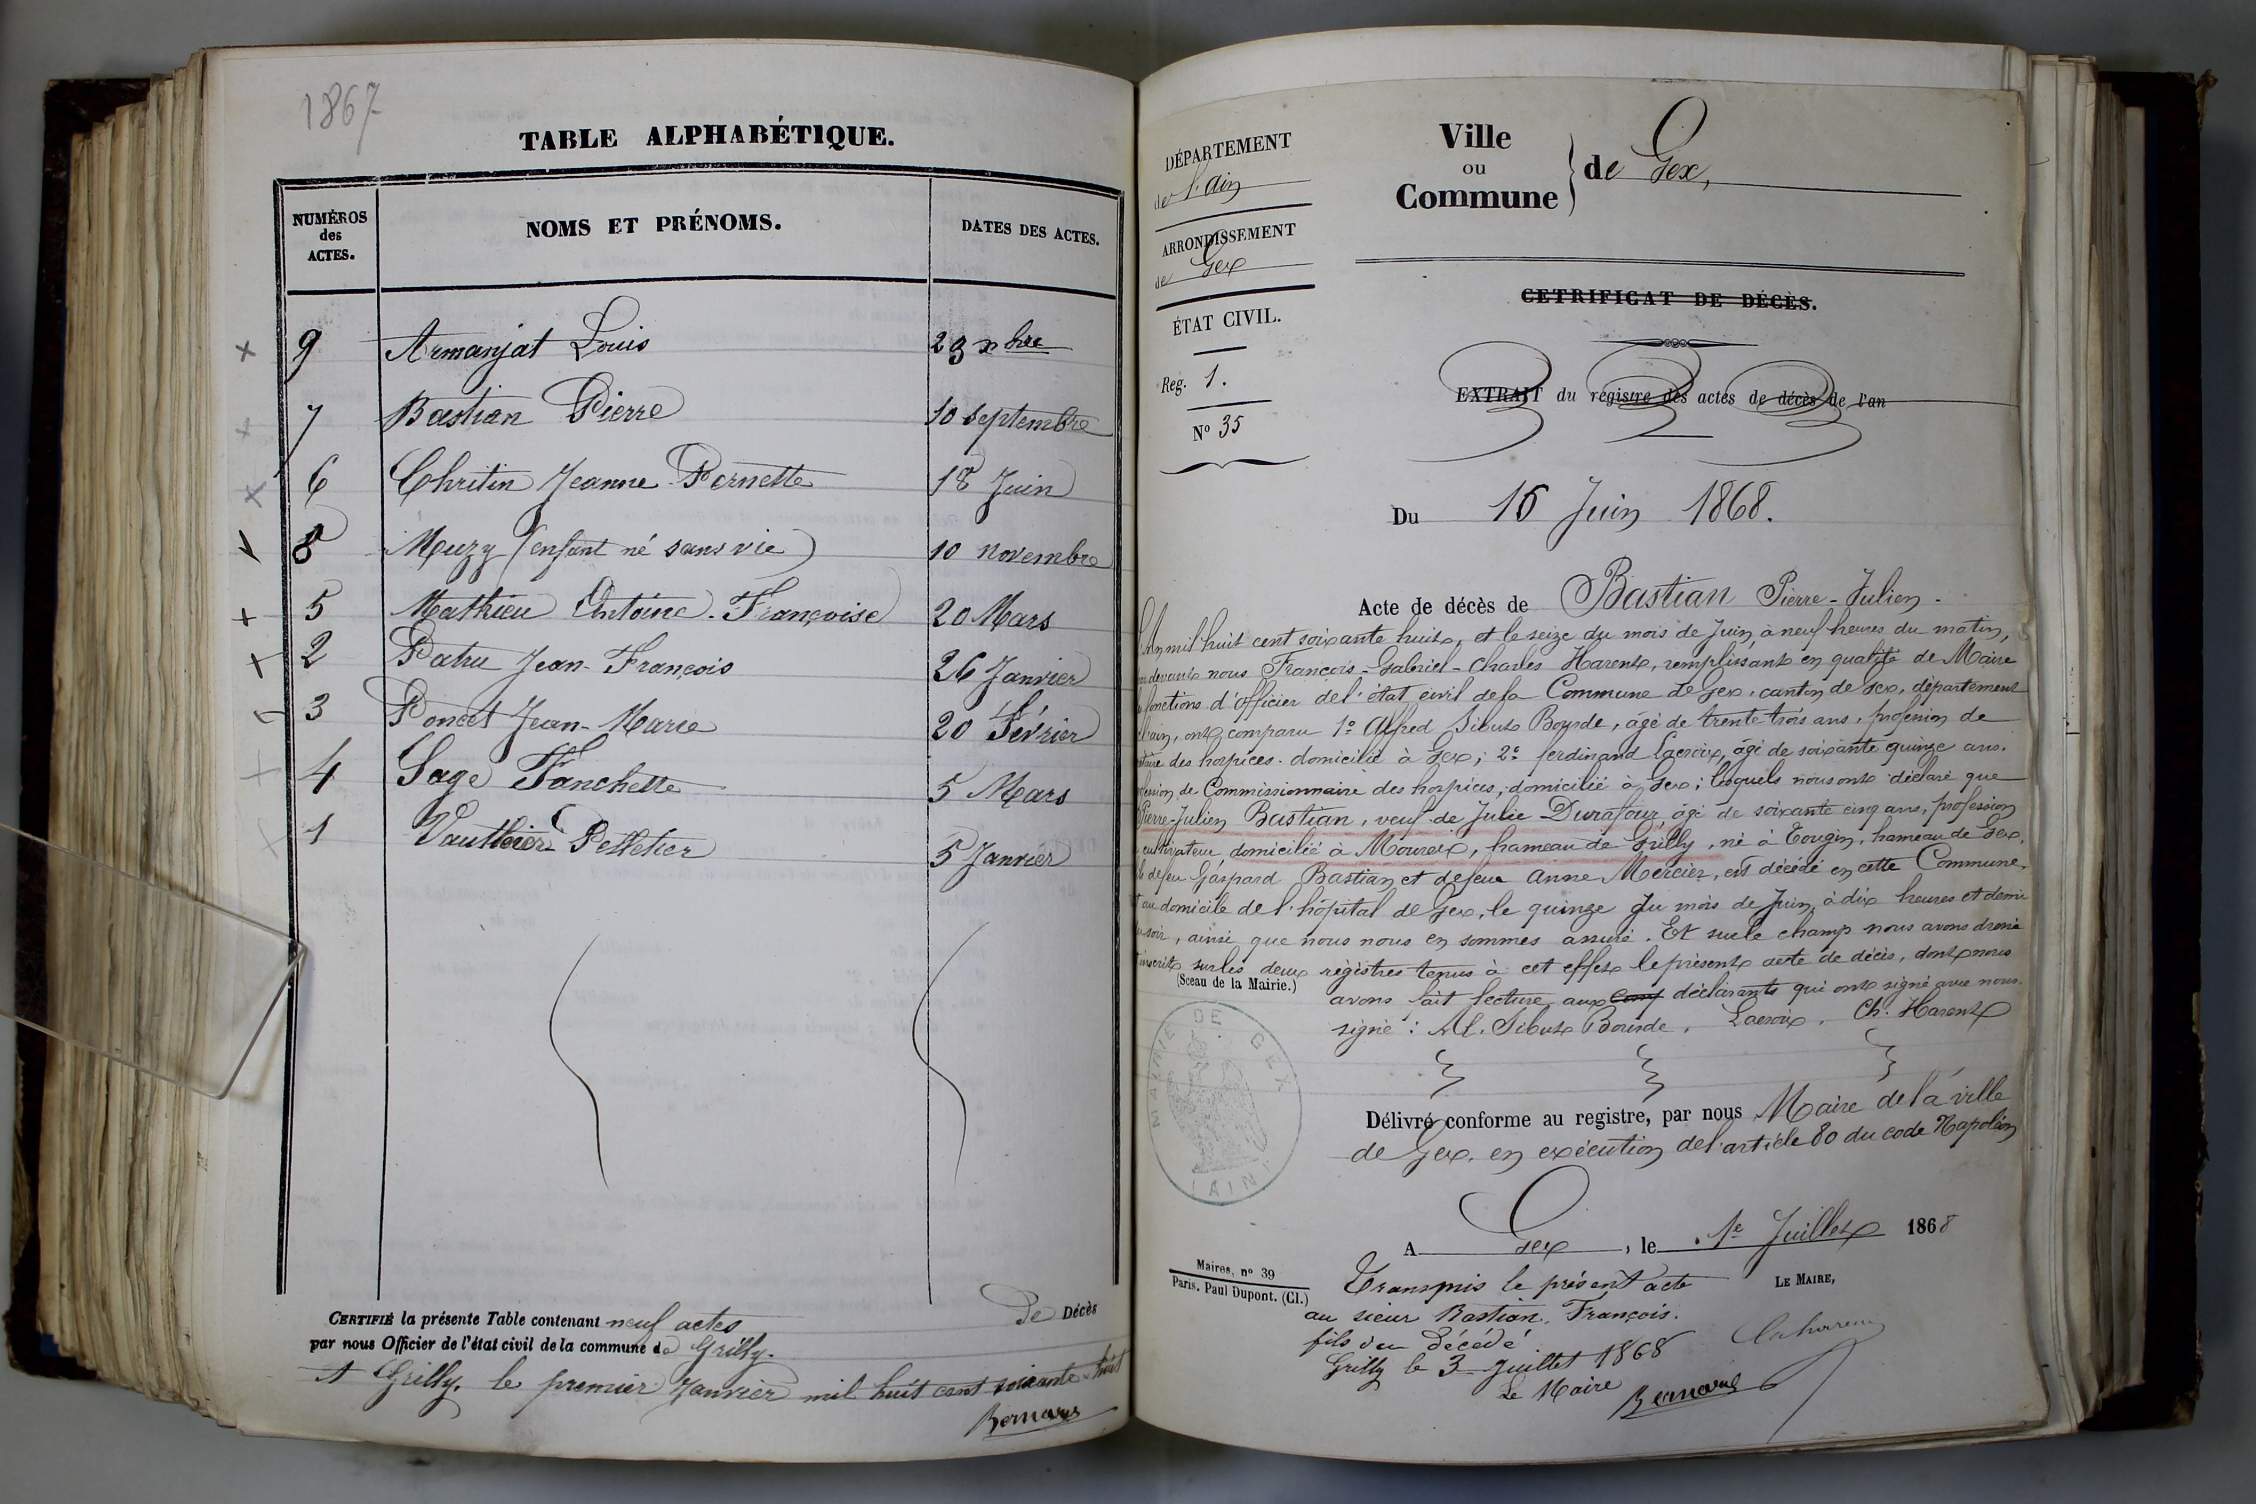 1867
TABLE ALPHABÉTIQUE.
NUMÉROS des ACTES. NOMS ET PRÉNOMS. DATES DES ACTES.
9 Armanjat Louis 23 xbre
7 Bastian Pierre 10 septembre
6 Chritin Jeanne Pernette 18 Juin
8 Muzy (enfant né sans vie) 10 novembre
5 Mathieu Antoine-Françoise 20 Mars
2 Patru Jean-François 26 Janvier
3 Poncet Jean-Marie 20 Février
4 Sage Fanchette 5 Mars
1 Vauthier Pelletier 5 Janvier
CERTIFIÉ la présente Table contenant neuf actes De DÉCÈS
par nous Officier de l'état civil de la commune de Grilly.
A Grilly, le premier Janvier mil huit cent soixante huit
Bernard
DÉPARTEMENT
de l'Ain
ARRONDISSEMENT
de Gex
ÉTAT CIVIL.
Reg. 1.
N° 35
Ville
ou
Commune
de Gex,
CETRIFICAT DE DÉCÈS.
EXTRAIT du registre des actes de décès de l'an
Du 16 Juin 1868.
Acte de décès de Bastian Pierre-Julien.
L'An mil huit cent soixante huit, et le seize du mois de Juin, à neuf heures du matin,
devant nous François-Gabriel-Charles Harent, remplissant en qualité de Maire
fonctions d'officier de l'état civil de la Commune de Gex, canton de Gex, département
l'ain, ont comparu 1° Alfred Sibut Bourde, âgé de trente trois ans, profession de
des hospices, domicilié à Gex; 2° ferdinand Lacroix, âgé de soixante quinze ans,
profession de Commissionnaire des hospices, domicilié à Gex; lesquels nous ont déclaré que
Pierre-Julien Bastian, veuf de Julie Durafour, âgé de soixante cinq ans, profession
cultivateur, domicilié à Mourex, hameau de Grilly, né à Tougin, hameau de Gex,
de feu Gaspard Bastian et de feue Anne Mercier, est décédé en cette Commune,
au domicile de l'hôpital de Gex, le quinze du mois de Juin, à dix heures et demie
du soir, ainsi que nous nous en sommes assuré. Et sur le champ nous avons dressé
inscrit sur les deux régistres tenus à cet effet le présent acte de décès, dont nous
(Sceau de la Mairie.)
avons fait lecture aux déclarants qui ont signé avec nous.
signé: Al. Sibut Bourde, Lacroix, Ch. Harent
MAIRIE DE GEX
(AIN)
Délivré conforme au registre, par nous Maire de la ville
de Gex, en exécution de l'article 80 du code Napoléon
A Gex, le 1e Juillet 1868
LE MAIRE,
Maires, n° 39
Paris. Paul Dupont. (Cl.)
Transmis le présent acte
au sieur Bastian, François.
fils du décédé
Grilly le 3 Juillet 1868
Le Maire Bernard